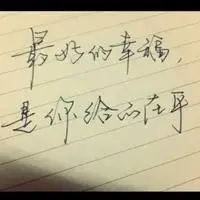 最好的幸福,
是你给的在乎